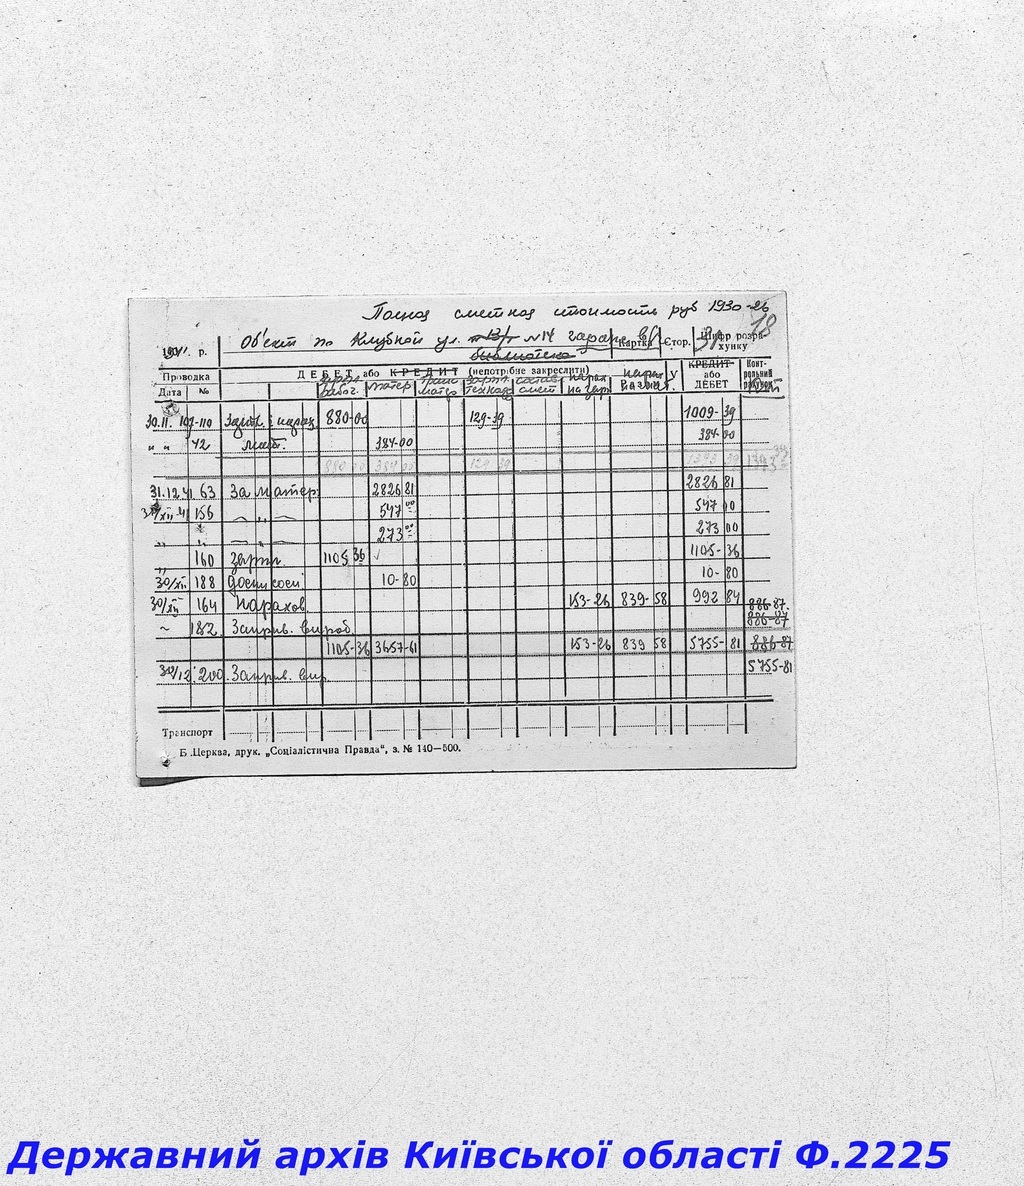 Полная сметная стоимость руб 1930-26
18
194 р. Об'єкт по Клубной ул. №14 гараж Картка Стор. Шифр розрахунку
библиотека
Проводка ДЕБЕТ або КРЕДИТ (непотрібне закреслити) КРЕДИТ або ДЕБЕТ Контрольний
Дата № матер
30.11. 107-110 880-00 129-39 1009-39
" " 42 мат. 384-00 384-00
880 00 384 00 129 39 1393 39 1393 39
31.12.41 63 За матер. 2826 81 2826 81
31/XII-41 156 " 547 00 547 00
" " " 273 00 273 00
" 160 зарпл 1105 36 1105-36
30/XII 188 10-80 10-80
30/XII 164 Нарахов. 153-26 839-58 992 84 886-87.
~ 182 Заприв. вироб. 886-87
1105-36 3657-61 153-26 839 58 5755-81 886-87
30/12. 200. Заприв. вир. 5755-81
Транспорт
Б.Церква, друк. „Соціалістична Правда“, з. № 140—500.
Державний архів Київської області Ф.2225